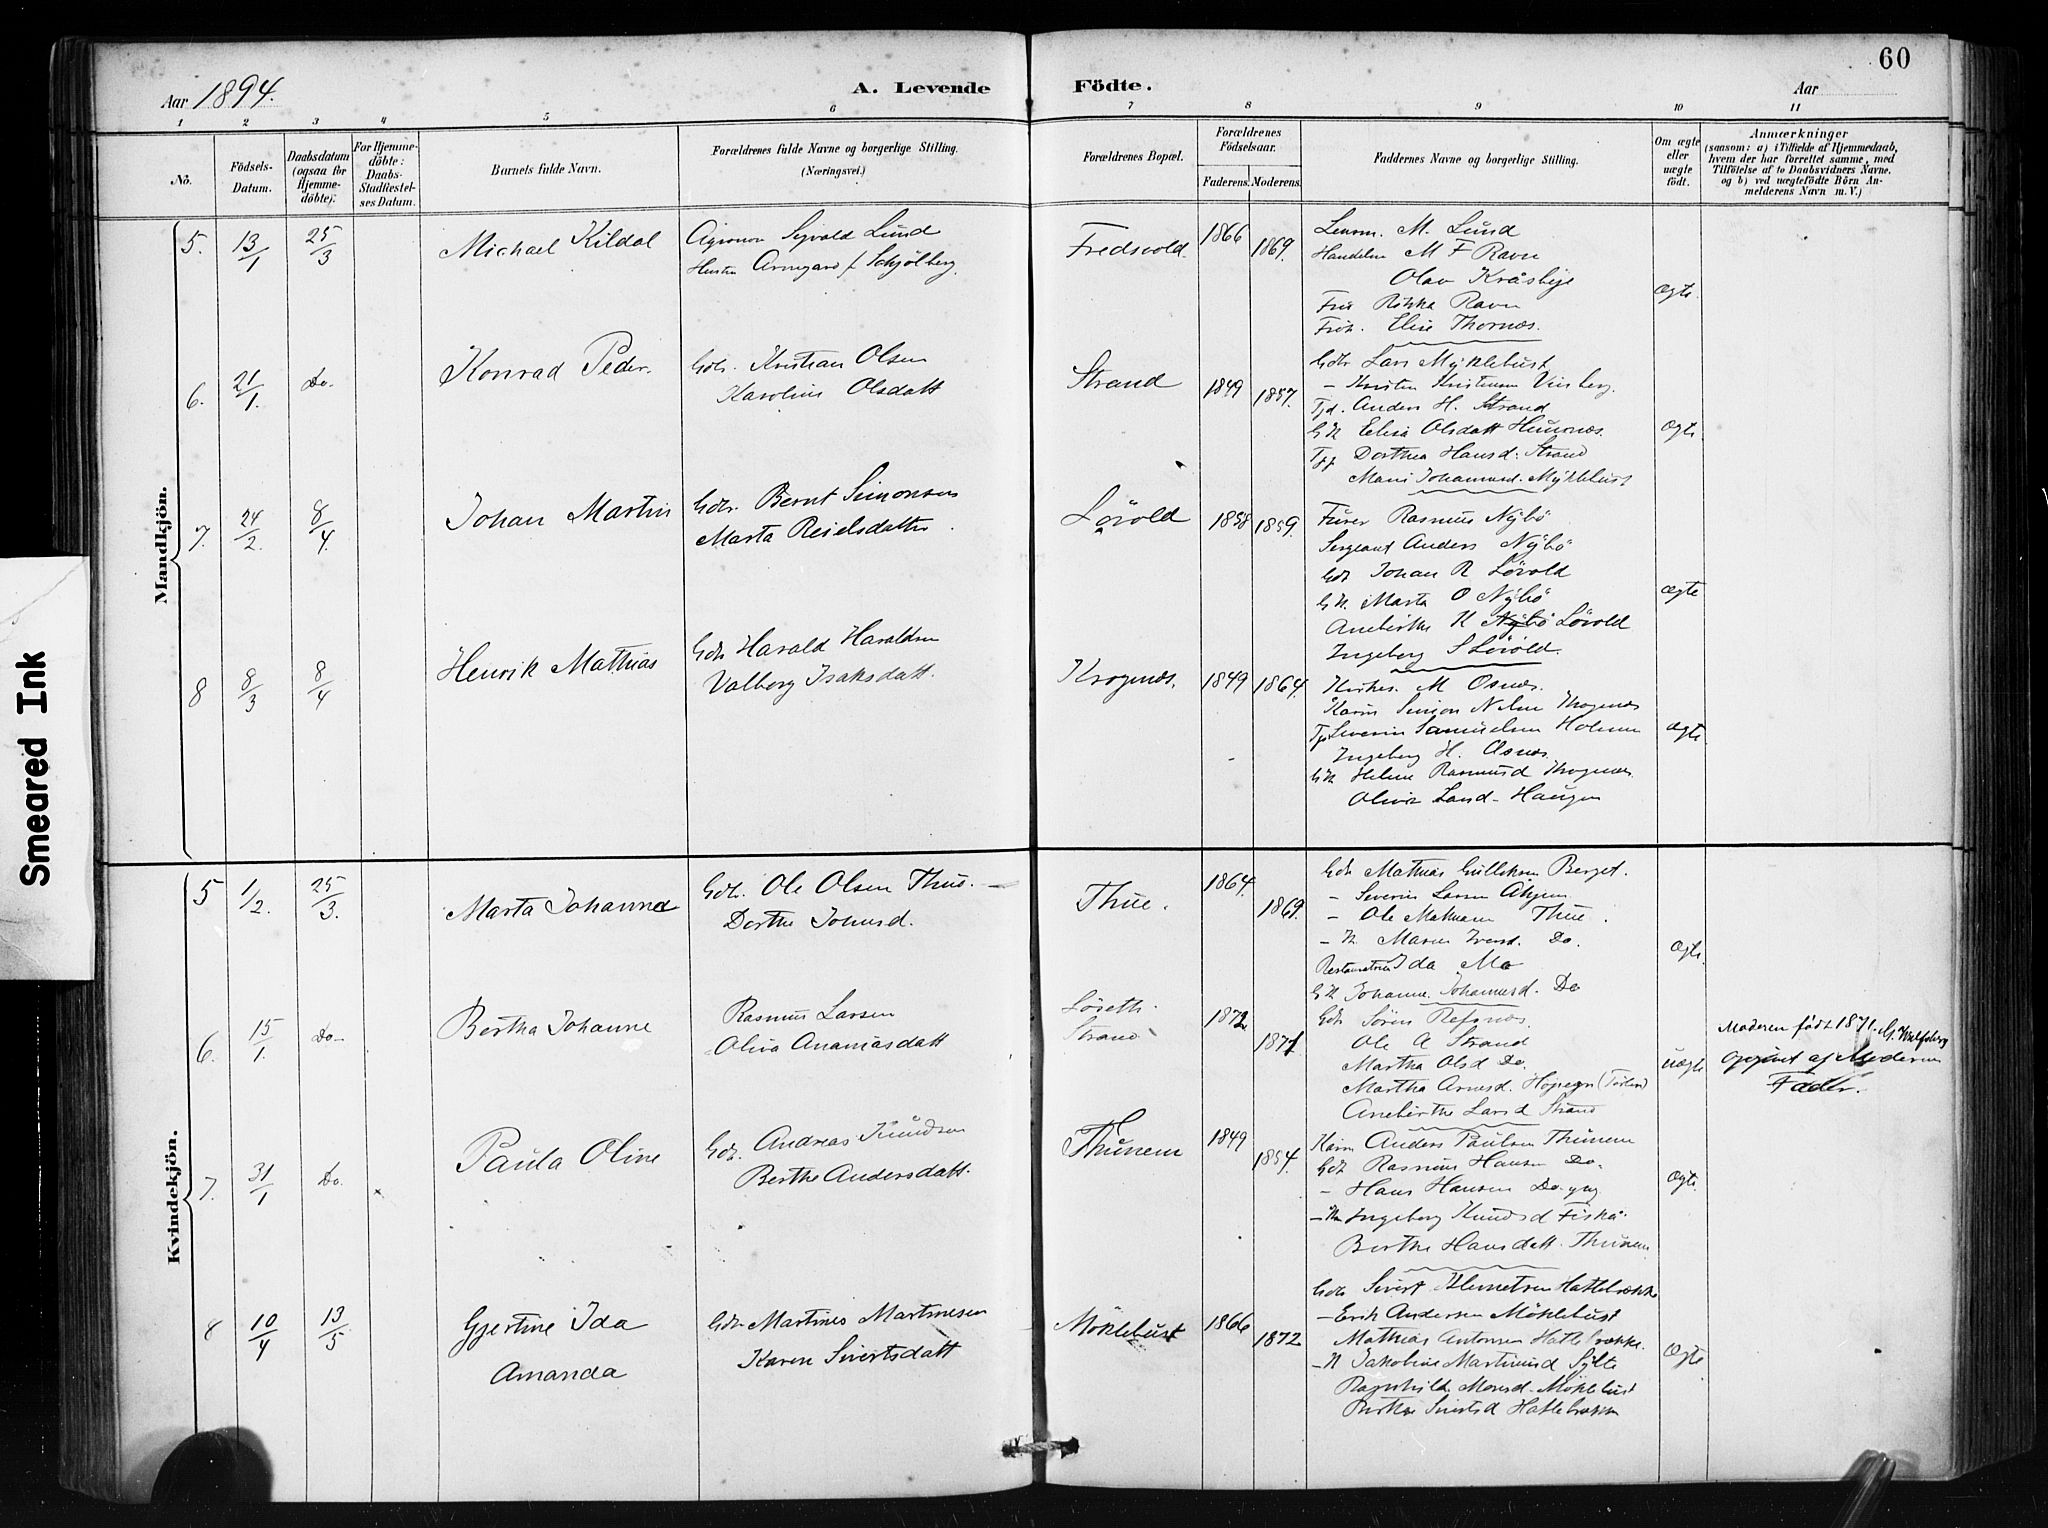 60
Aar 1894.
A. Levende Födte.
Aar
1 2 3 4 5 6 7 8 9 10 11
No.
Födsels-Datum.
Daabsdatum (ogsaa for Hjemme-döbte).
For Hjemme-döbte: Daabs-Stadfæstel-ses Datum.
Barnets fulde Navn.
Forældrenes fulde Navne og borgerlige Stilling. (Næringsvei.)
Forældrenes Bopæl.
Forældrenes Födselsaar.
Faderens. Moderens.
Faddernes Navne og borgerlige Stilling.
Om ægte eller uægte födt.
Anmærkninger
(saasom: a) i Tilfælde af Hjemmedaab, hvem der har forrettet samme, med Tilföielse af to Daabsvidners Navne. og b) ved uægtefödte Börn An-melderens Navn m. V.)
Mandkjön.
5. 13/1 25/3 Michael Kildal
Agronom Sigvald Lund
Hustru Annegard f. Schjölberg.
Fredsvold. 1866 1869.
Lensm. M. Lund
Handelsm M F Ravn
Olav Kråsbye
Fru Rikka Ravn
Frök. Elise Thornæs.
Ægte.
6. 21/1. Do. Konrad Peder.
Gdr. Kristian Olsen
Karolius Olsdatt
Strand 1849 1857.
Gdr Lars Myklebust
- Kristen Kristensen
Tjd. Anders H. Strand
GK Elisa Olsdatt
Tjp Dorthea Hansd. Strand
Mari Johannesd. Myklebust
Ægte
7. 24/2. 8/4. Johan Martin
Gdr. Bernt Simonsen
Marta Reielsdatter.
Lövold 1858 1859.
Furer Rasmus Nybö
Sergeant Anders Nybö
Gdr Johan R Lövold
GK. Marta O Nybö
Aneberthe K Lövold
Ingeborg S Lövold.
ægte
8 8/3 8/4 Henrik Mathias
Gdr Harald Haraldsen
Valborg Isaksdatt.
Krogenæs. 1849 1864.
Kirkes. M Osnæs.
Karm Simon Krogenæs
Tjp Severin Samuelsen Holmen
Ingeborg H. Osnæs.
GK Helene Rasmusd Krogenæs.
Olivia Larsd - Haugen
ægte
Kvindekjön.
5 1/2. 25/3. Marta Johanna
Gdr. Ole Olsen Thue.
Dorthe Johnsd.
Thue. 1864. 1869.
Gdr Mathias Gulleksen Berget.
- Severin Larsen
- Ole Thue.
- K. Maren Iversd. Do.
Ida Mo
GK Johanne Johannesd. Do
Ægte.
6. 15/1. Do- Bertha Johanne
Rasmus Larsen
Oliva Ananiasdatt
Löseth
Strand
1872 1871
Gdr Sören Refsnæs.
Ole A Strand
Martha Olsd Do.
Martha Arnesd.
Aneberthe Larsd Strand
uægte
Moderen födt 1871. G. Wulfsberg
opgivet af Moderens
Fader.
7. 31/1 Do. Paula Oline
Gdr. Andreas Knudsen
Berthe Andersdatt.
Thunem 1849 1854.
Karm Anders Paulsen Thunem
Gdr Rasmus Hansen Do.
- Hans Hansen Do yng
- Kn Ingeborg Knudsd Fiskå.
Berthe Hansdatt. Thunem
Ægte.
8 10/4 13/5 Gjertine Ida
Amanda
Gdr Martines Martinesen
Karen Sivertsdatt
Möklebust 1866 1872
Gdr Sivert Klemetsen Hattebrække
- Erik Andersen Möklebust
Mathias Antonsen Hattebrække.
- K Jakobine Martinusd Sylte
Ragnhild Monsd. Möklebust
Berthe Sivertsd Hattebrække
Ægte
Smeared Ink